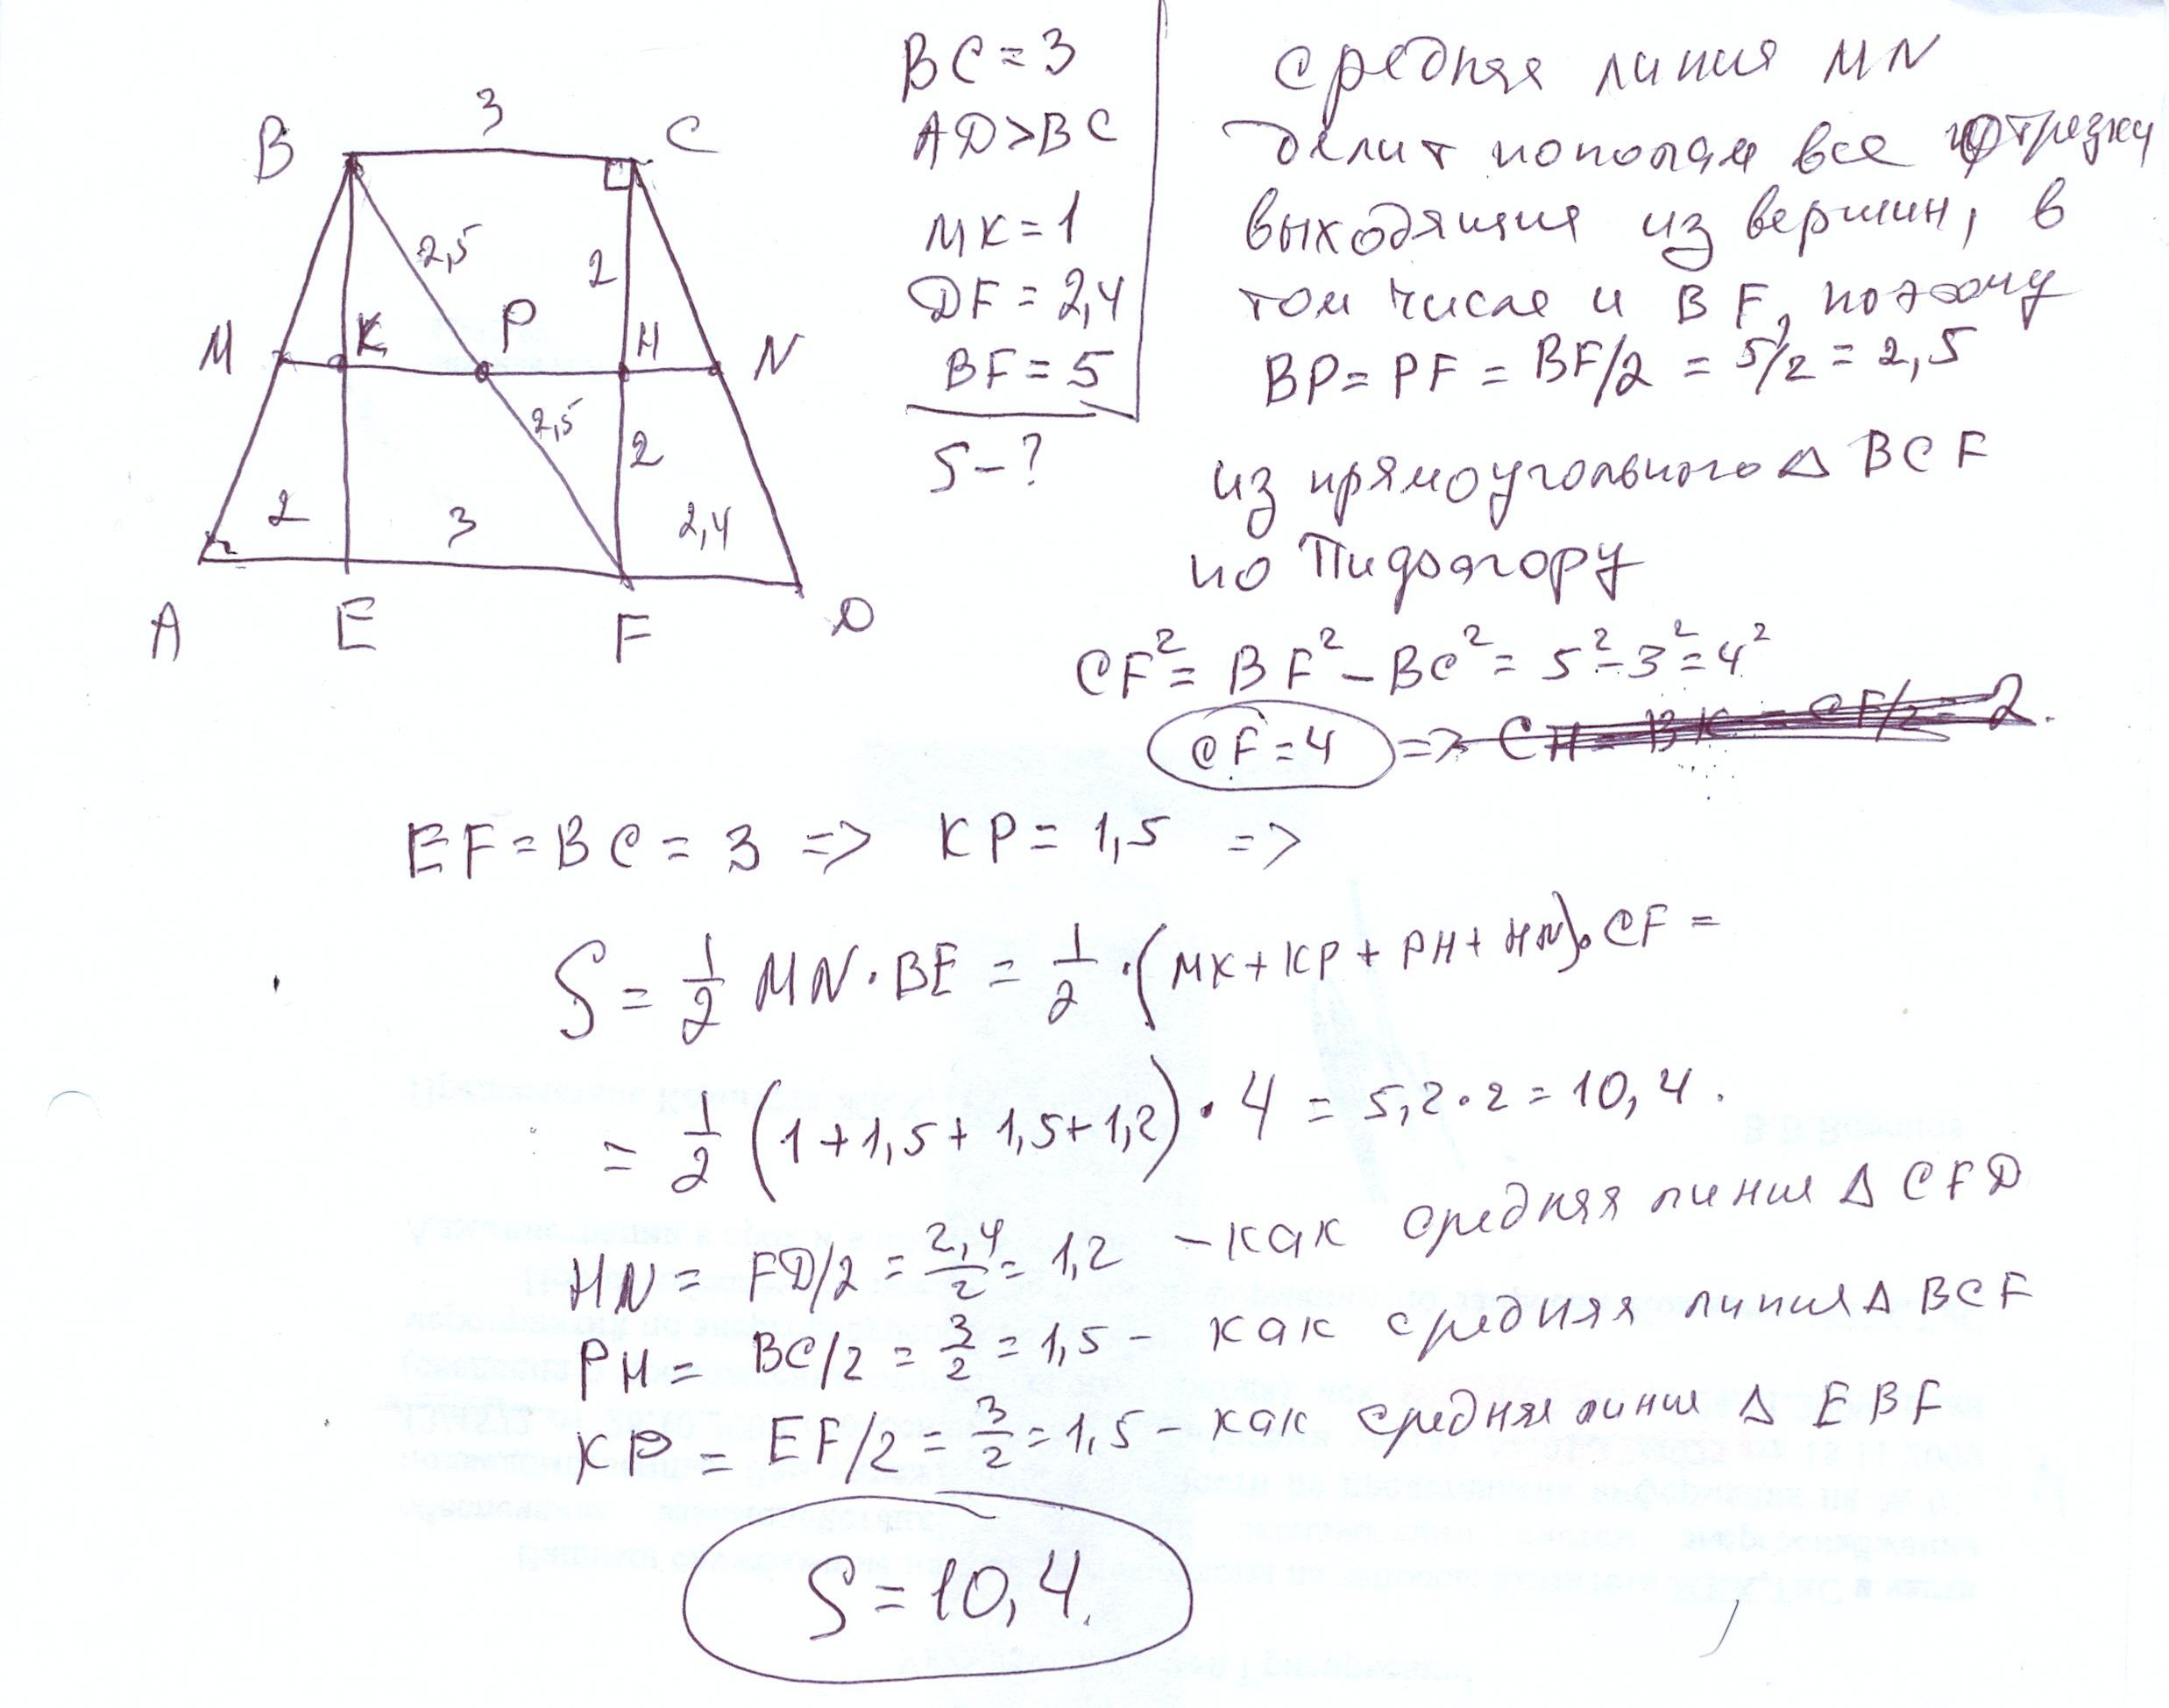 3
B
C
2,5
2
M
K
P
H
N
2,5
2
2
3
2,4
A
E
F
D
BC = 3
AD > BC
MK = 1
DF = 2,4
BF = 5
S - ?
средняя линия MN
делит пополам все отрезки
выходящия из вершин, в
том числе и BF, поэтому
BP = PF = BF/2 = 5/2 = 2,5
из прямоугольного Δ BCF
по Пифагору
CF² = BF² - BC² = 5² - 3² = 4²
CF = 4 => CH = BK = CF/2 = 2.
EF = BC = 3 => KP = 1,5 =>
S = 1/2 MN · BE = 1/2 · (MK + KP + PH + HN) · CF =
= 1/2 (1 + 1,5 + 1,5 + 1,2) · 4 = 5,2 · 2 = 10,4.
HN = FD/2 = 2,4/2 = 1,2 - как средняя линия Δ CFD
PH = BC/2 = 3/2 = 1,5 - как средняя линия Δ BCF
KP = EF/2 = 3/2 = 1,5 - как средняя линия Δ EBF
S = 10,4.